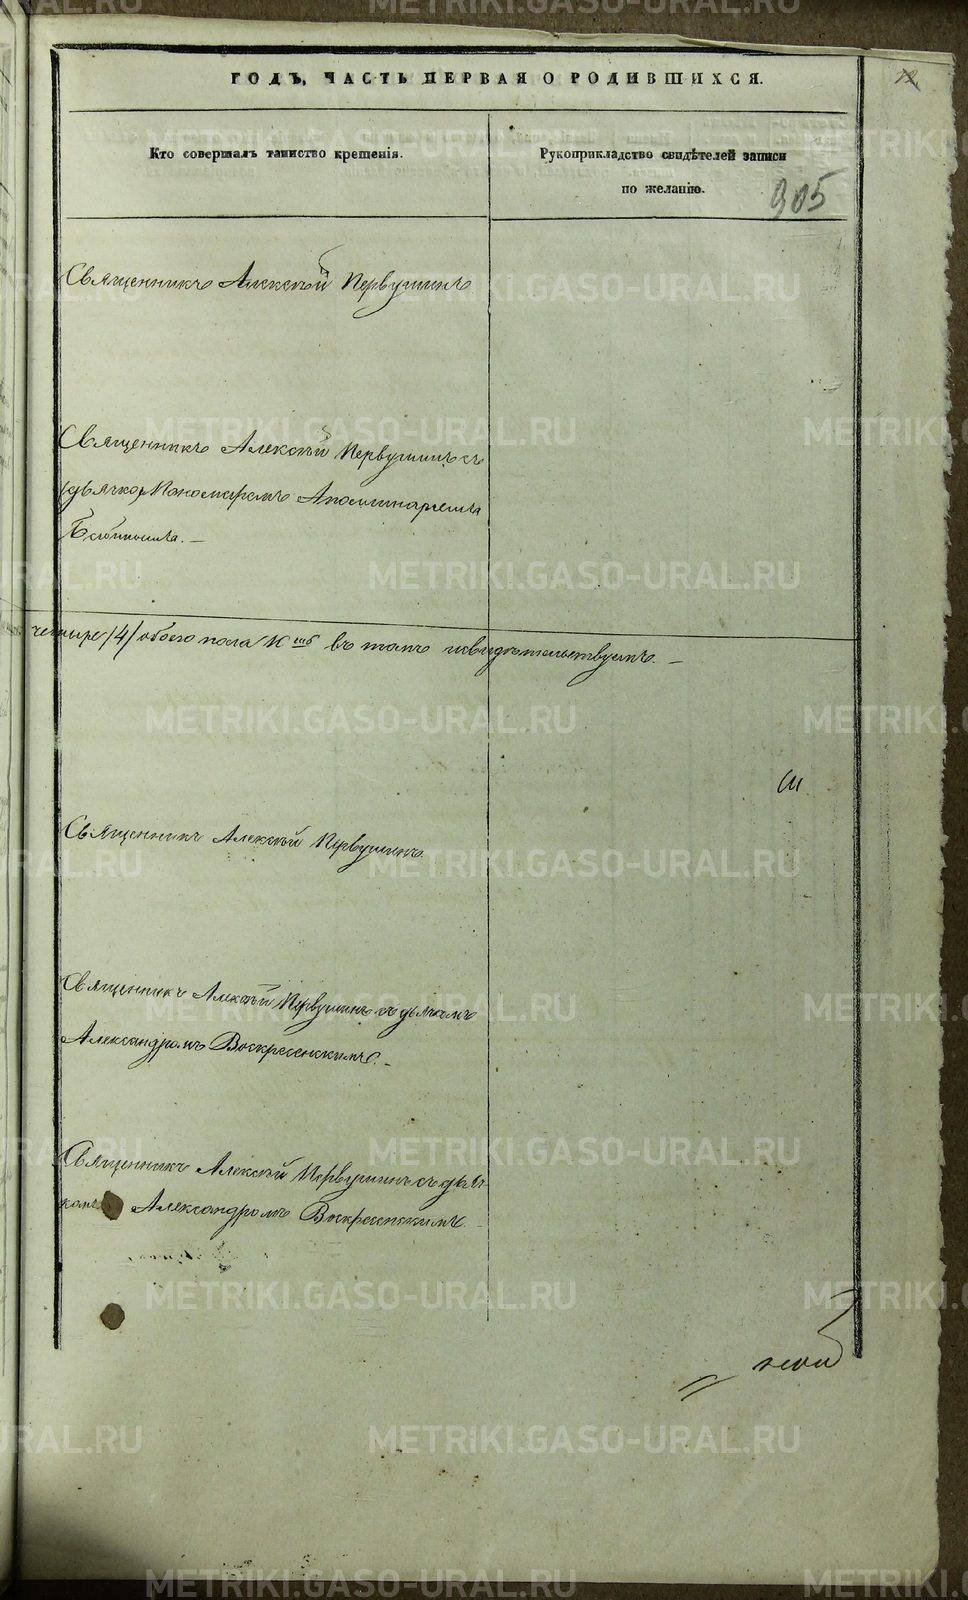 ГОДЪ, ЧАСТЬ ПЕРВАЯ О РОДИВШИХСЯ.
Кто совершалъ таинство крещенія.
Рукоприкладство свидѣтелей записи
по желанію.
905
Священникъ Алексѣй Первушинъ
Священникъ Алексѣй Первушинъ съ
Пономаремъ
четыре /4/ обоего пола въ томъ и свидѣтельствуемъ. —
Священникъ Алексѣй Первушинъ.
Священникъ Алексѣй Первушинъ съ дьячкомъ
Александромъ Воскресенскимъ. —
Священникъ Алексѣй Первушинъ съ дьяч-
комъ Александромъ Воскресенскимъ. —
METRIKI.GASO-URAL.RU